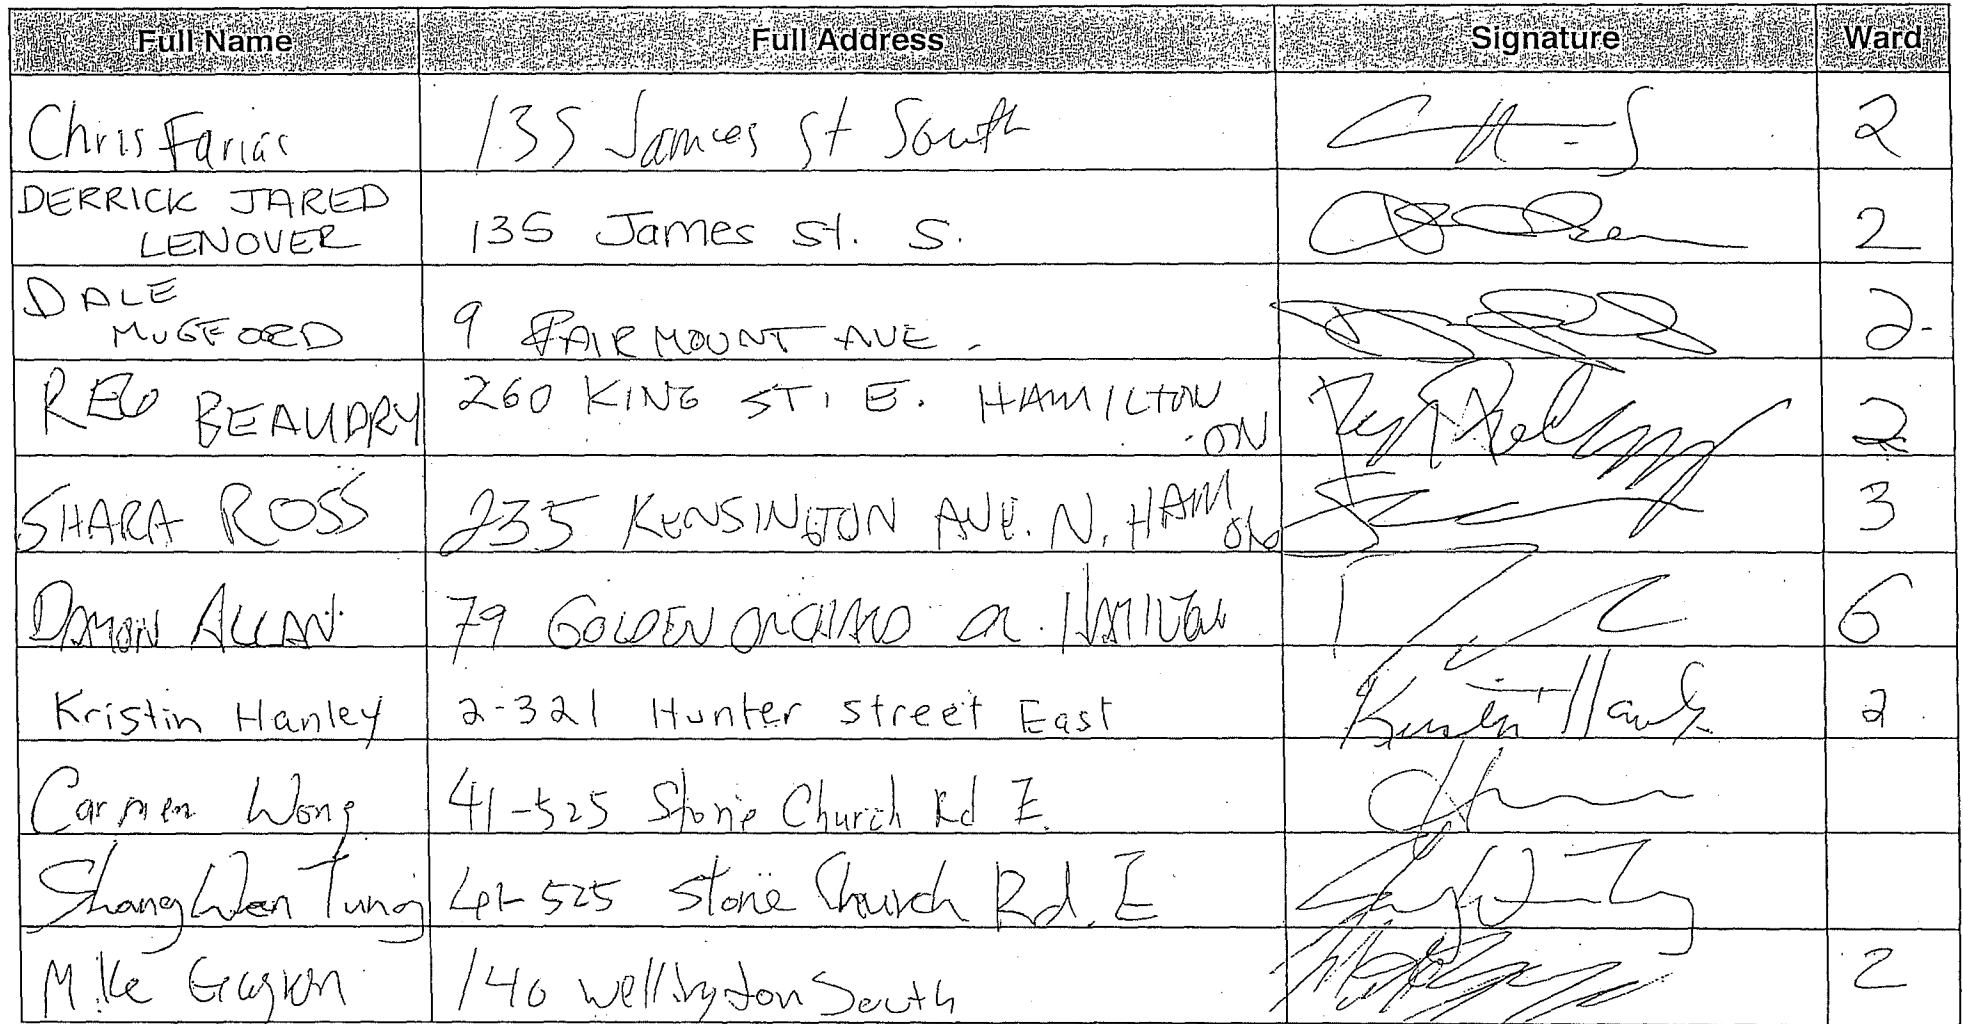 Full Name Full Address Signature Ward
Chris Farias 135 James St South 2
DERRICK JARED
LENOVER 135 James St. S. 2
DALE
MUGFORD 9 FAIRMOUNT AVE. 2
REG BEAUDRY 260 KING ST. E. HAMILTON
ON 2
SHARA ROSS 235 KENSINGTON AVE. N. HAM
ON 3
DAMON ALLAN 79 GOLDEN ORCHARD DR. HAMILTON 6
Kristin Hanley 2-321 Hunter Street East Kristin Hanley 2
Carmen Wong 41-525 Stone Church Rd E.
Shang Wen Tung 41-525 Stone Church Rd. E
Mike 140 Wellington South 2